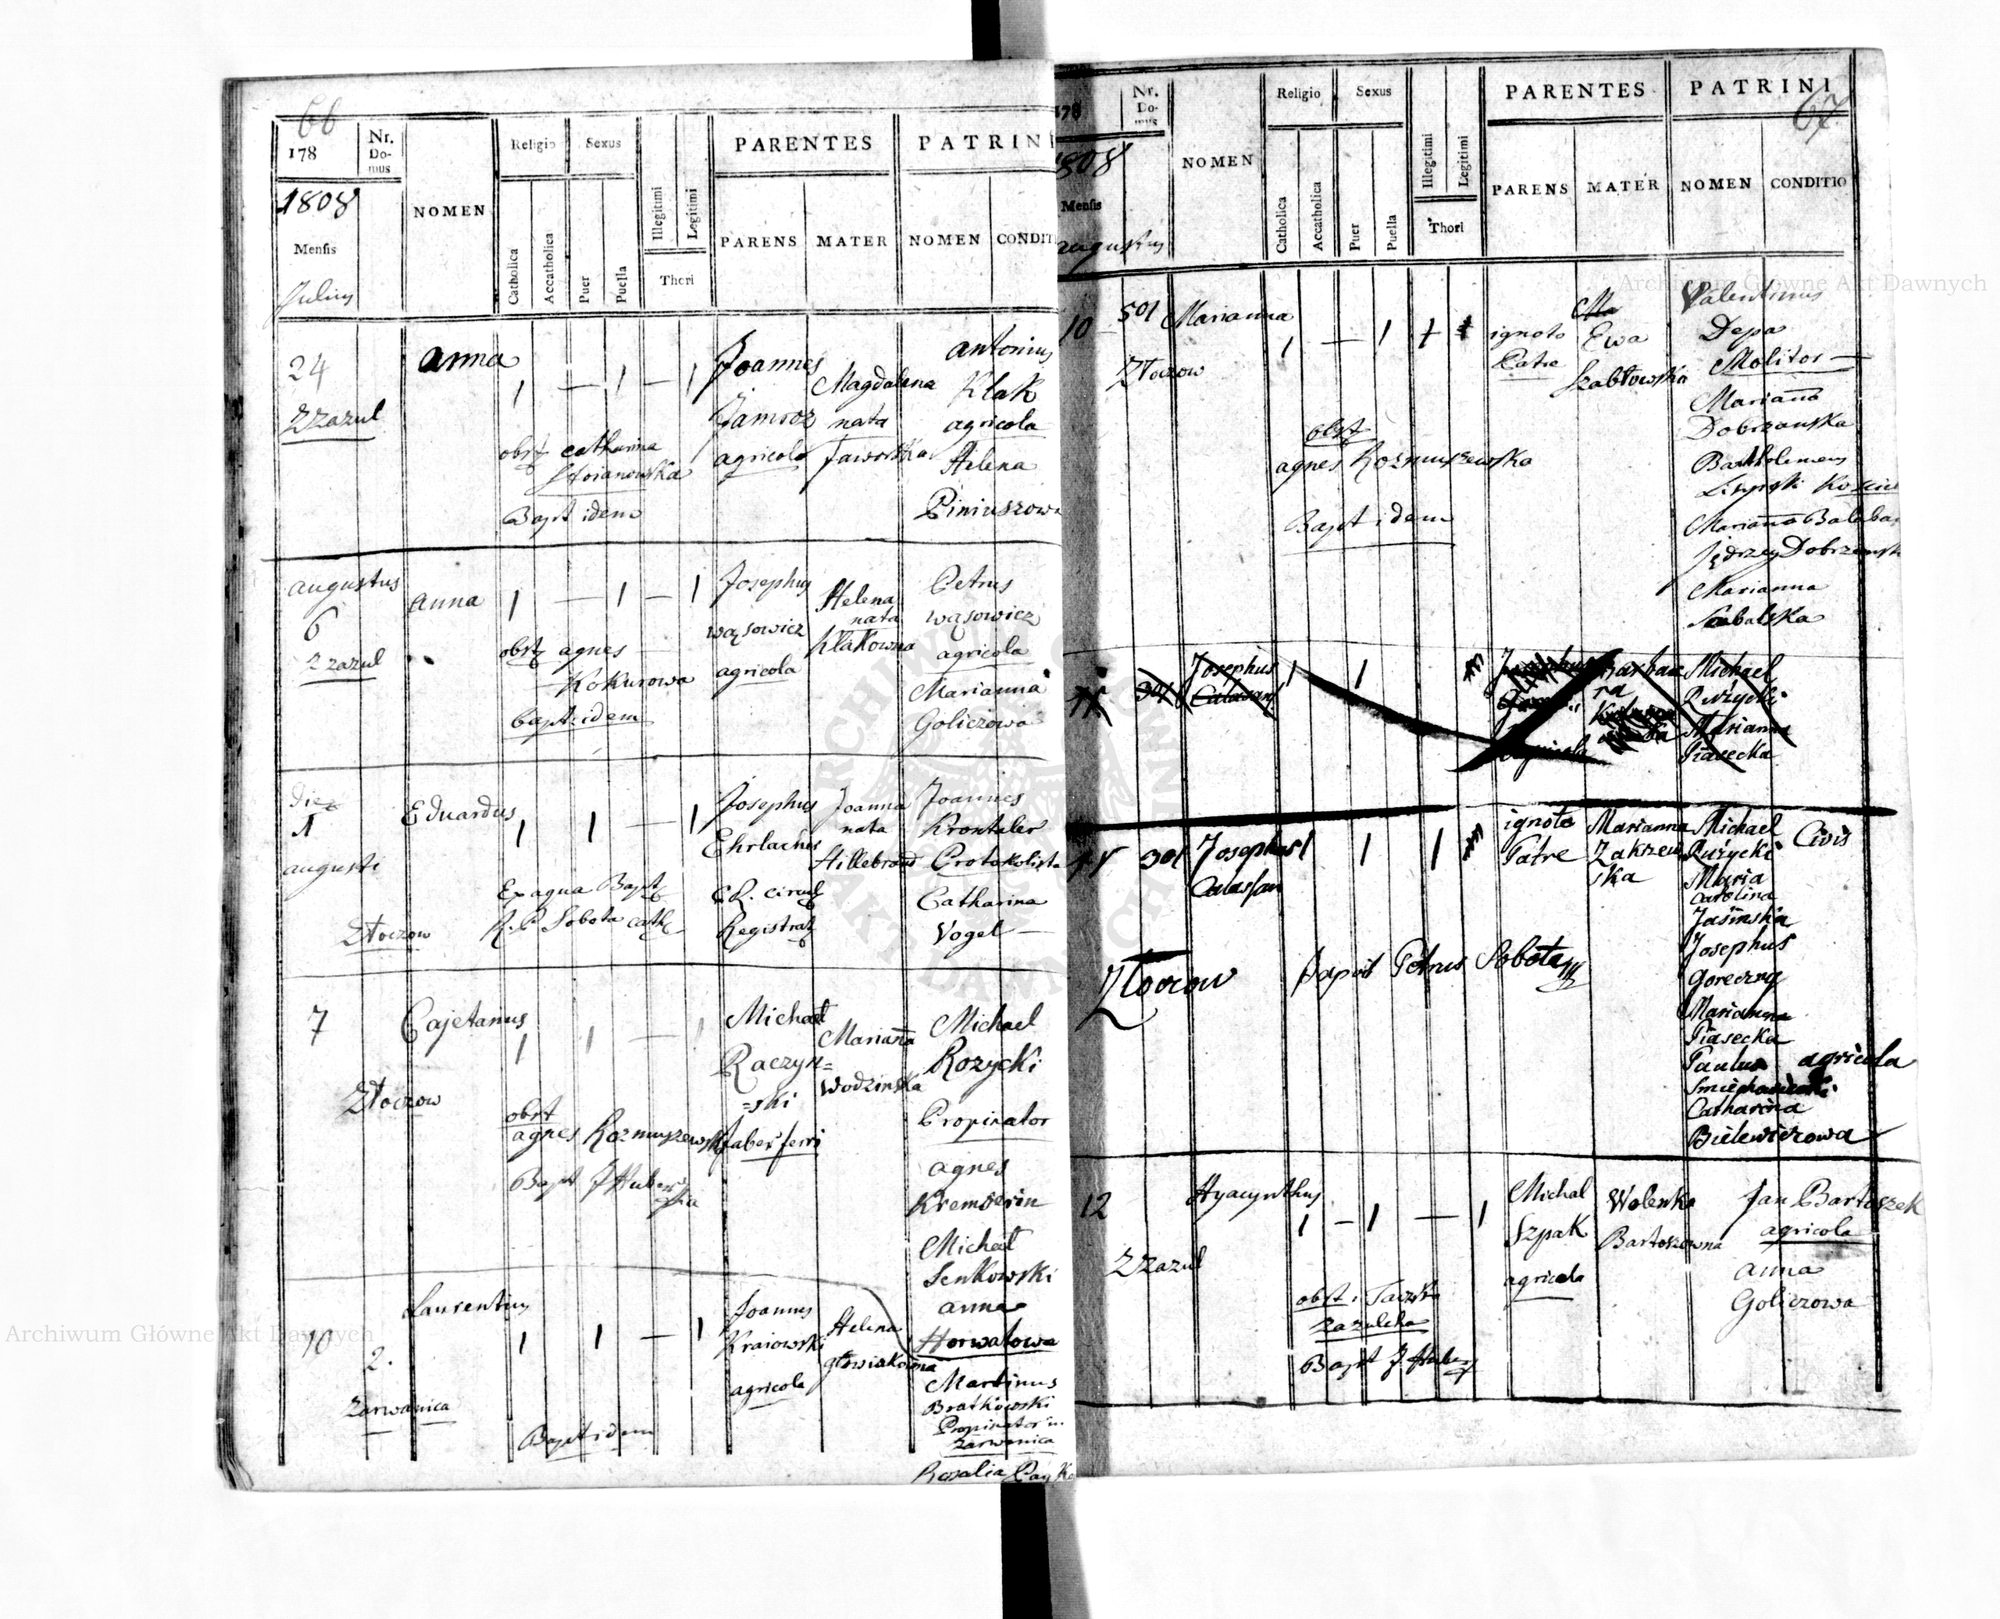 66
178
Nr.
Do-
mus
NOMEN
Religio
Sexus
Catholica
Accatholica
Puer
Puella
Illegitimi
Legitimi
Thori
PARENTES
PARENS
MATER
PATRINI
NOMEN
CONDITI
1808
Mensis
Julius
24
Zzazul
Anna
1 — 1 — 1
obst Catharina
Bapt idem
Joannes
Jamroz
agricola
Magdalena
nata
Jaworska
Antonius
Klak
agricola
Helena
Piniuszowa
augustus
6
Zzazul
Anna
1 — 1 — 1
obst agnes
Kokurowa
Bapt idem
Josephus
Wąsowicz
agricola
Helena
nata
Klakowna
Petrus
Wąsowicz
agricola
Marianna
Goliczowa
die
1
augusti
Złoczow
Eduardus
1 1 — 1
Ex aqua Bapt
R. P. Sobota cath
Josephus
Ehrlacher
C. R. Circul
Registrat
Joanna
nata
Hillebrand
Joannes
Krontaler
Protokolista
Catharina
Vogel —
7
Złoczow
Cajetanus
1 1 — 1
obst
agnes Rozmuszewska
Bapt J Huber
Michael
Raczyn=
=ski
faber ferri
Marianna
Wodzinska
Michael
Rozycki
Propinator
agnes
Kremserin
Michael
Senkowski
anna
Horwatowa
10
2.
Zarwanica
Laurentius
1 1 — 1
Bapt idem
Joannes
Kraiowski
agricola
Helena
Głowiakowna
Martinus
Bratkowski
Propinator in
Zarwanica
Rosalia
67
178
Nr.
Do-
mus
NOMEN
Religio
Sexus
Catholica
Accatholica
Puer
Puella
Illegitimi
Legitimi
Thori
PARENTES
PARENS
MATER
PATRINI
NOMEN
CONDITIO
1808
Mensis
augustus
10
501
Złoczow
Marianna
1 — 1 1
obst
agnes Rozmuszewska
Bapt idem
ignoto
Patre
Ewa
Szabłowska
Valentinus
Depa
Molitor —
Marianna
Dobrzanska
Bartholemeus
Marianna Balaba
Jędrzey Dobrzansk
Marianna
301
Josephus
Calasanz
1 1
Barbara
Michael
Rużycki
Marianna
Piasecka
301
Josephus
Calasan
1 1 1
Złoczow
Bapt Petrus Sobota
ignoto
Patre
Marianna
Zakrzew
ska
Michael
Rużycki
Civis
Maria
Carolina
Jasinska
Josephus
Goreczny
Marianna
Piasecka
Paulus agricola
Catharina
Bielewiczowa
12
Zzazul
Hyacynthus
1 — 1 — 1
Bapt J Huber
Michal
Szpak
agricola
Walenka
Bartoszowna
Jan Bartoszek
agricola
anna
Goliczowa
Archiwum Główne Akt Dawnych
Archiwum Główne Akt Dawnych
ARCHIWUM GŁÓWNE
AKT DAWNYCH